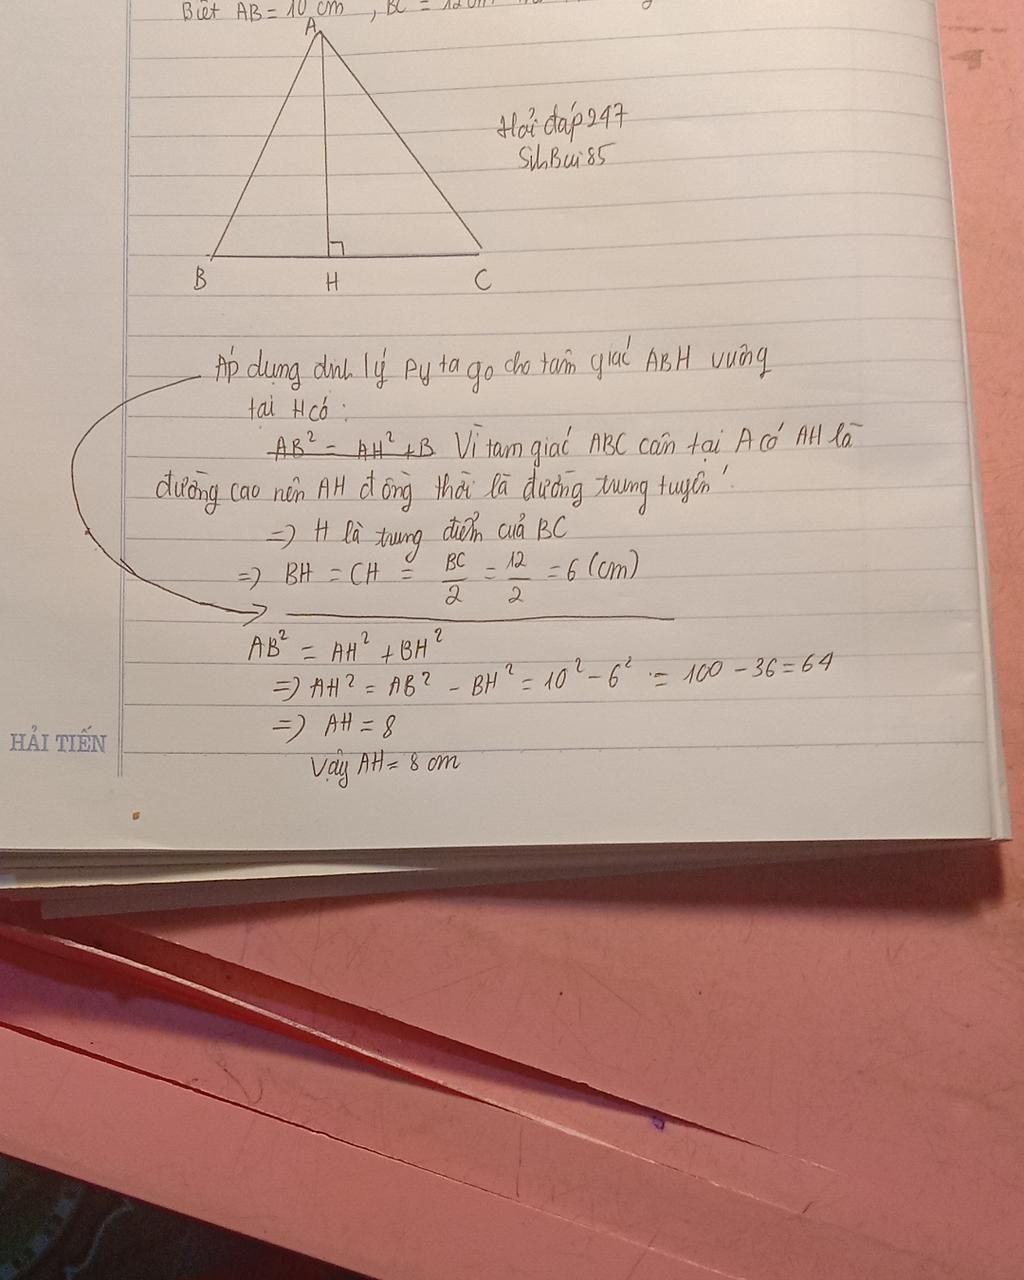 Biết AB = 10 cm , BC = 12cm
A
Hỏi đáp 247
SinBui85
B H C
Áp dụng định lý Py ta go cho tam giác ABH vuông
tại H có :
AB² = AH² + B Vì tam giác ABC cân tại A có AH là
đường cao nên AH đồng thời là đường trung tuyến
=> H là trung điểm của BC
=> BH = CH = BC/2 = 12/2 = 6 (cm)
AB² = AH² + BH²
=> AH² = AB² - BH² = 10² - 6² = 100 - 36 = 64
=> AH = 8
Vậy AH = 8 cm
HẢI TIẾN